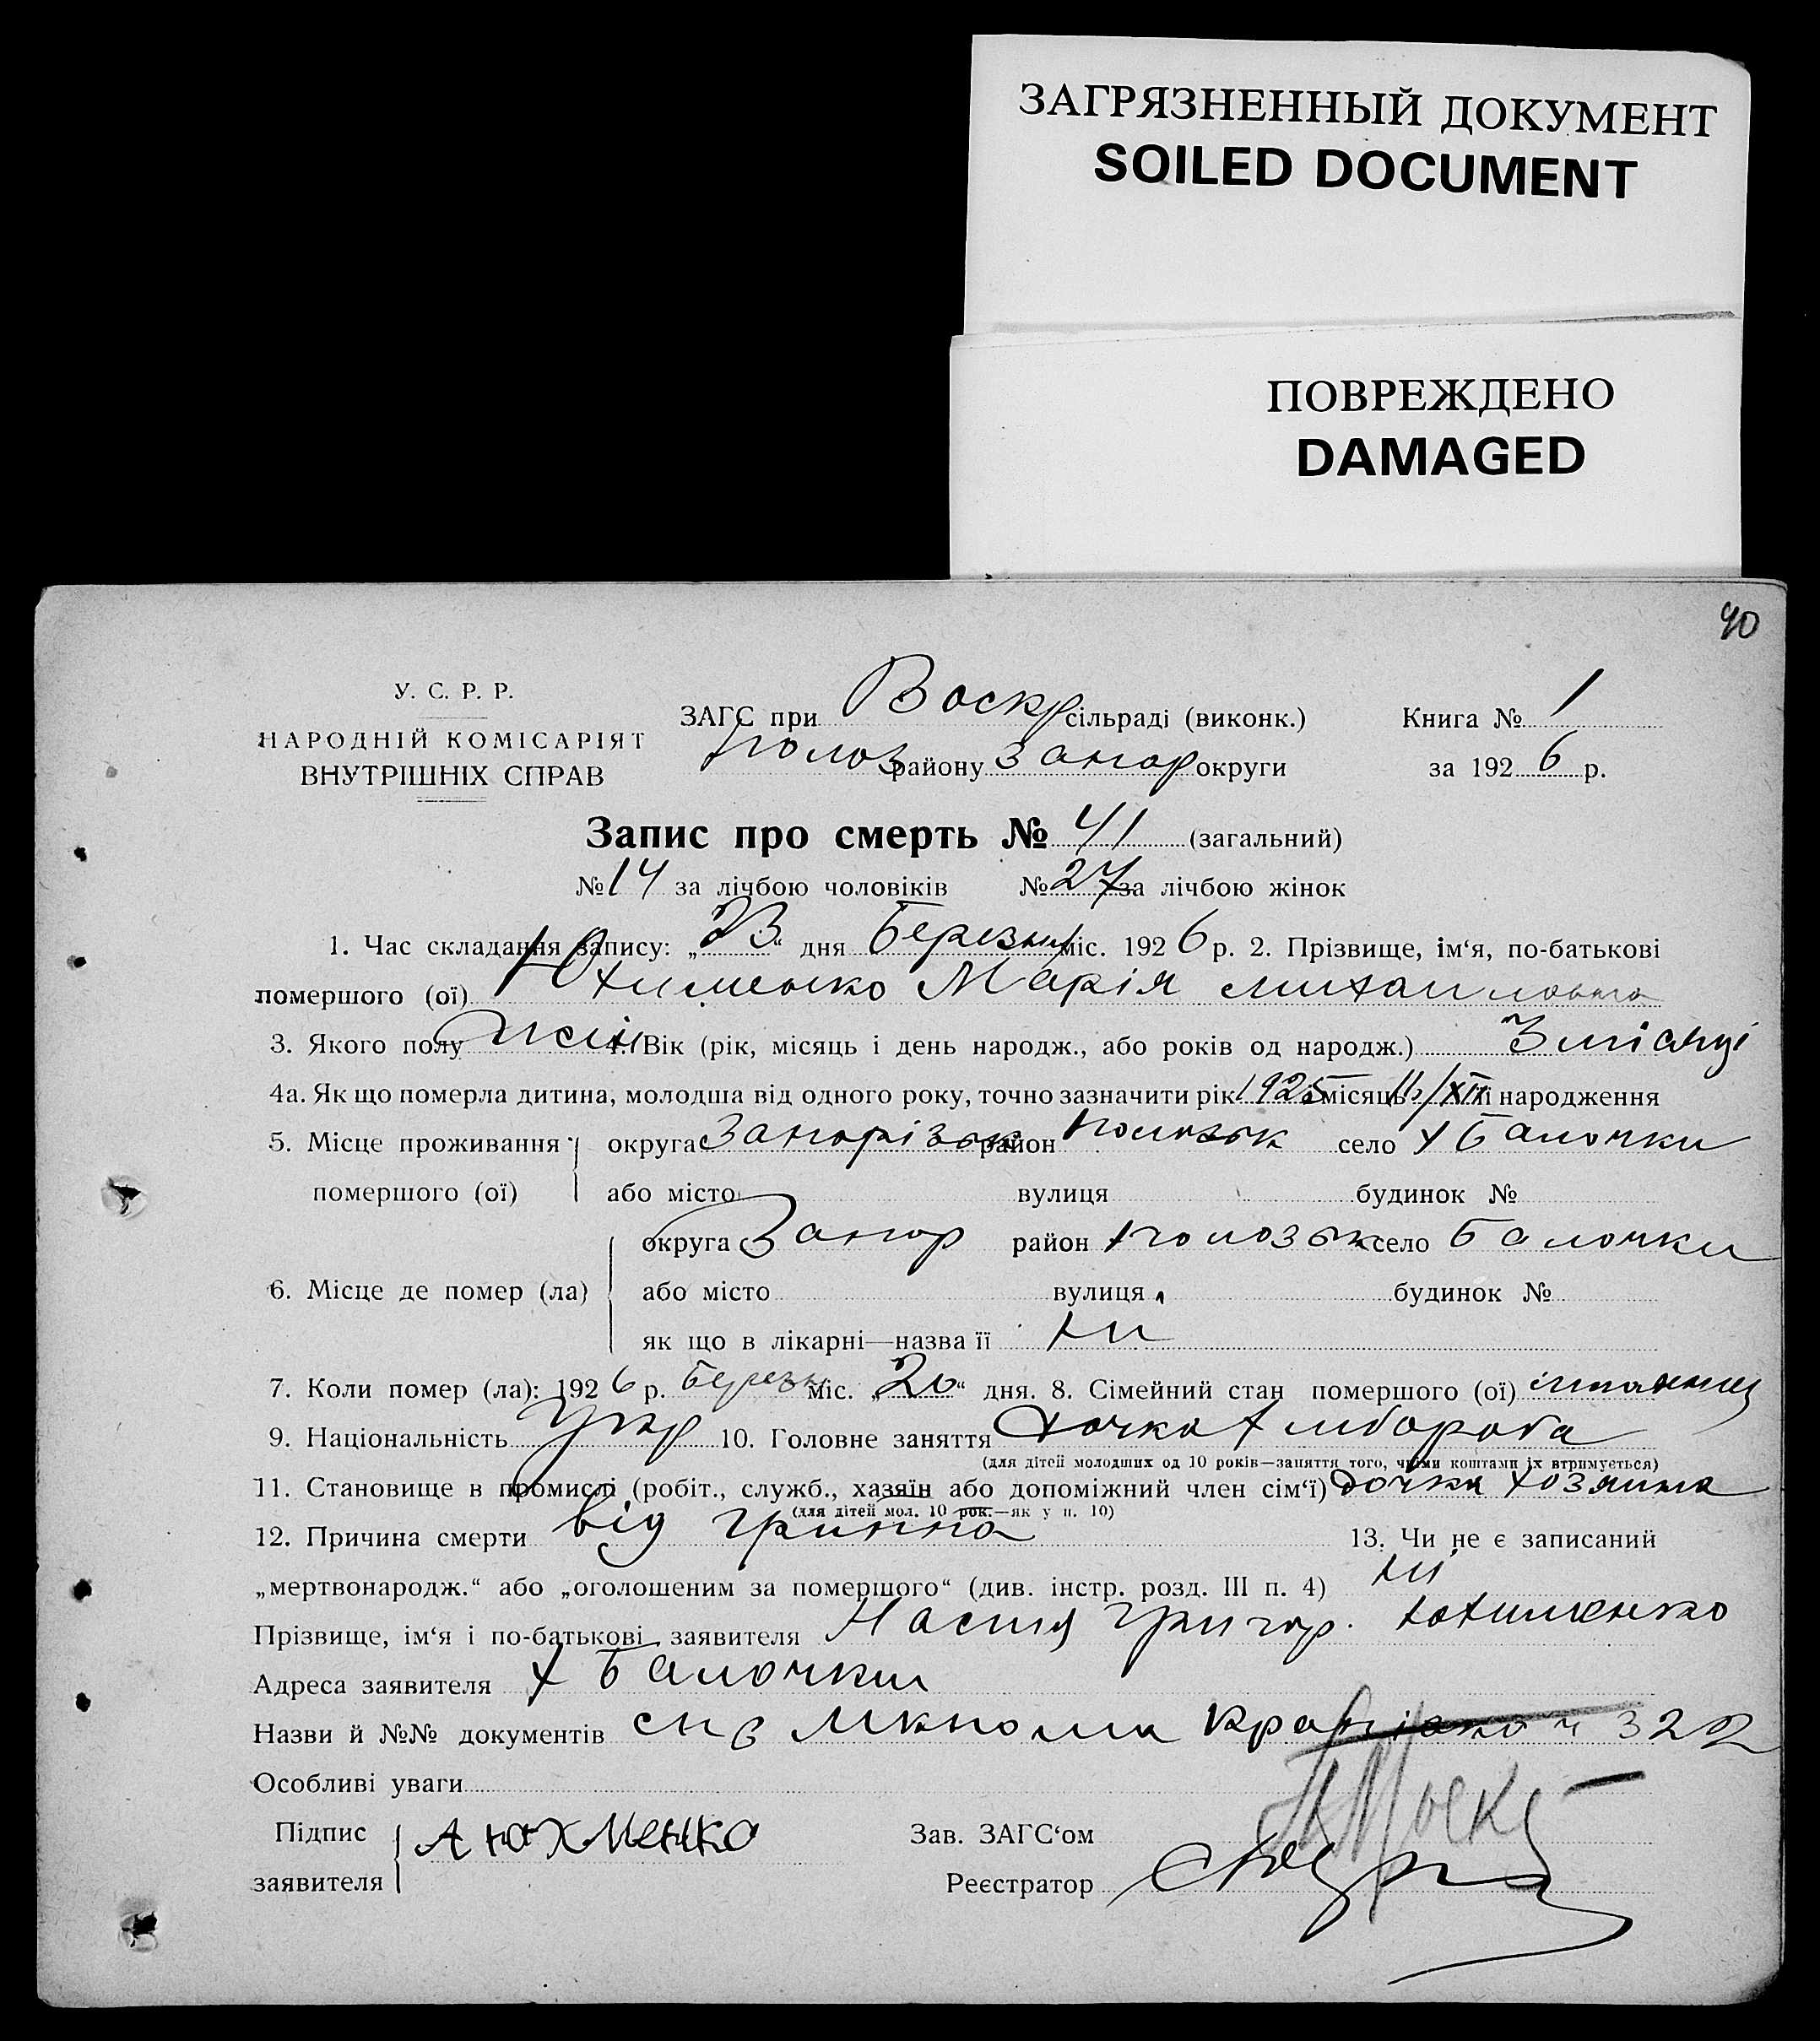 ЗАГРЯЗНЕННЫЙ ДОКУМЕНТ
SOILED DOCUMENT
ПОВРЕЖДЕНО
DAMAGED
40
У. С. Р. Р.
НАРОДНІЙ КОМІСАРІЯТ
ВНУТРІШНІХ СПРАВ
ЗАГС при Воскр сільраді (виконк.)
району Запор округи
Книга № 1
за 1926 р.
Запис про смерть № 41 (загальний)
№ 14 за лічбою чоловіків № 27 за лічбою жінок
1. Час складання запису: „23“ дня Березня міс. 1926 р. 2. Прізвище, ім‘я, по-батькові
помершого (ої) Юхименко Марія михаиловна
3. Якого полу жін 4. Вік (рік, місяць і день народж., або років од народж.) 3 місяці
4а. Як що померла дитина, молодша від одного року, точно зазначити рік 1925 місяць і народження
5. Місце проживання помершого (ої) округа Запорізьк район село х Балочки
або місто вулиця будинок №
6. Місце де помер (ла) округа Запор район село Балочки
або місто вулиця будинок №
як що в лікарні—назва її ні
7. Коли помер (ла): 1926 р. Березн міс. „20“ дня. 8. Сімейний стан помершого (ої)
9. Національність Укр 10. Головне заняття дочка хлібороба
(для дітей молодших од 10 років—заняття того, чиїми коштами їх втримується)
11. Становище в промислі (робіт., служб., хазяїн або допоміжний член сім‘ї) дочка хозяина
(для дітей мол. 10 рок.—як у п. 10)
12. Причина смерти від гриппа 13. Чи не є записаний
„мертвонародж.“ або „оголошеним за помершого“ (див. інстр. розд. III п. 4) ні
Прізвище, ім‘я і по-батькові заявителя Настя Григор. Юхименко
Адреса заявителя х Балочки
Назви й №№ документів 322
Особливі уваги
Підпис заявителя А Юхменко
Зав. ЗАГС‘ом
Реєстратор